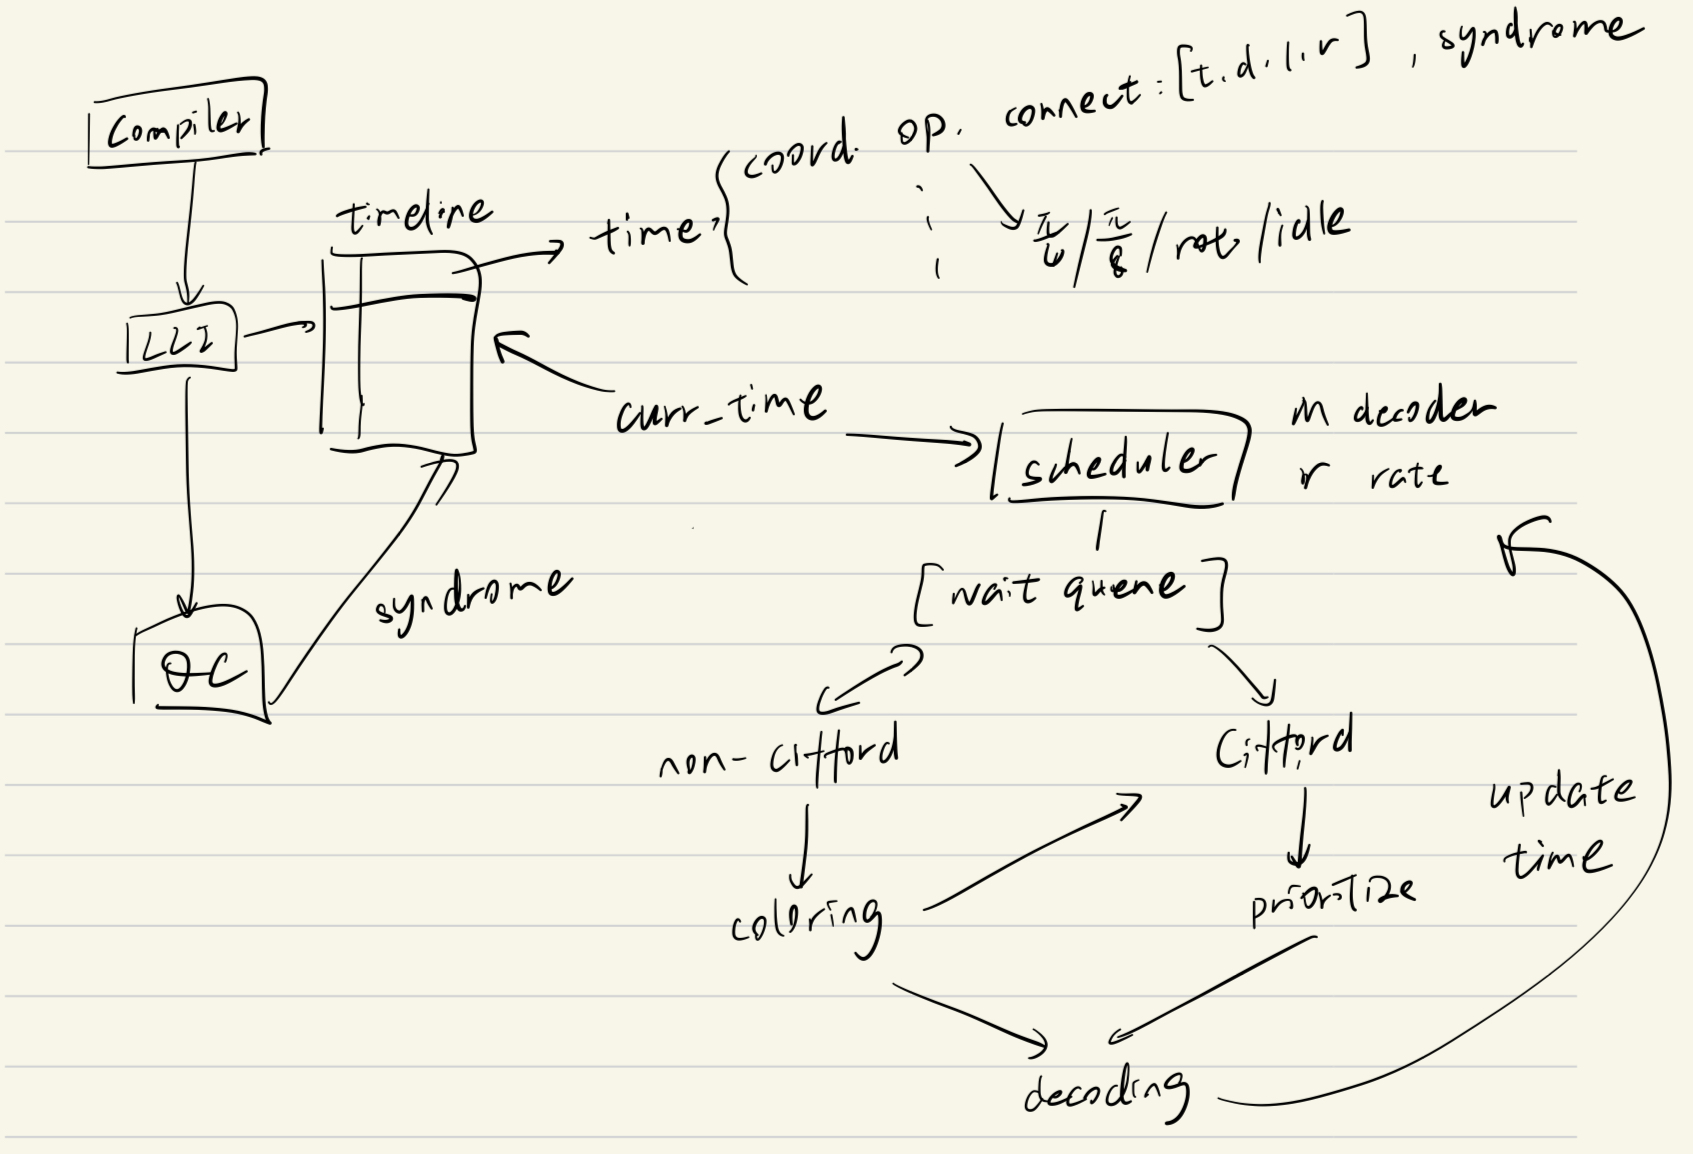 compiler
LLI
QC
timeline
time: { coord. op. connect: [t.d.l.r], syndrome
π/4 / π/8 / rot. / idle
curr_time
syndrome
scheduler
M decoder
r rate
[wait quene]
non-clifford
Clifford
coloring
prioritize
decoding
update
time